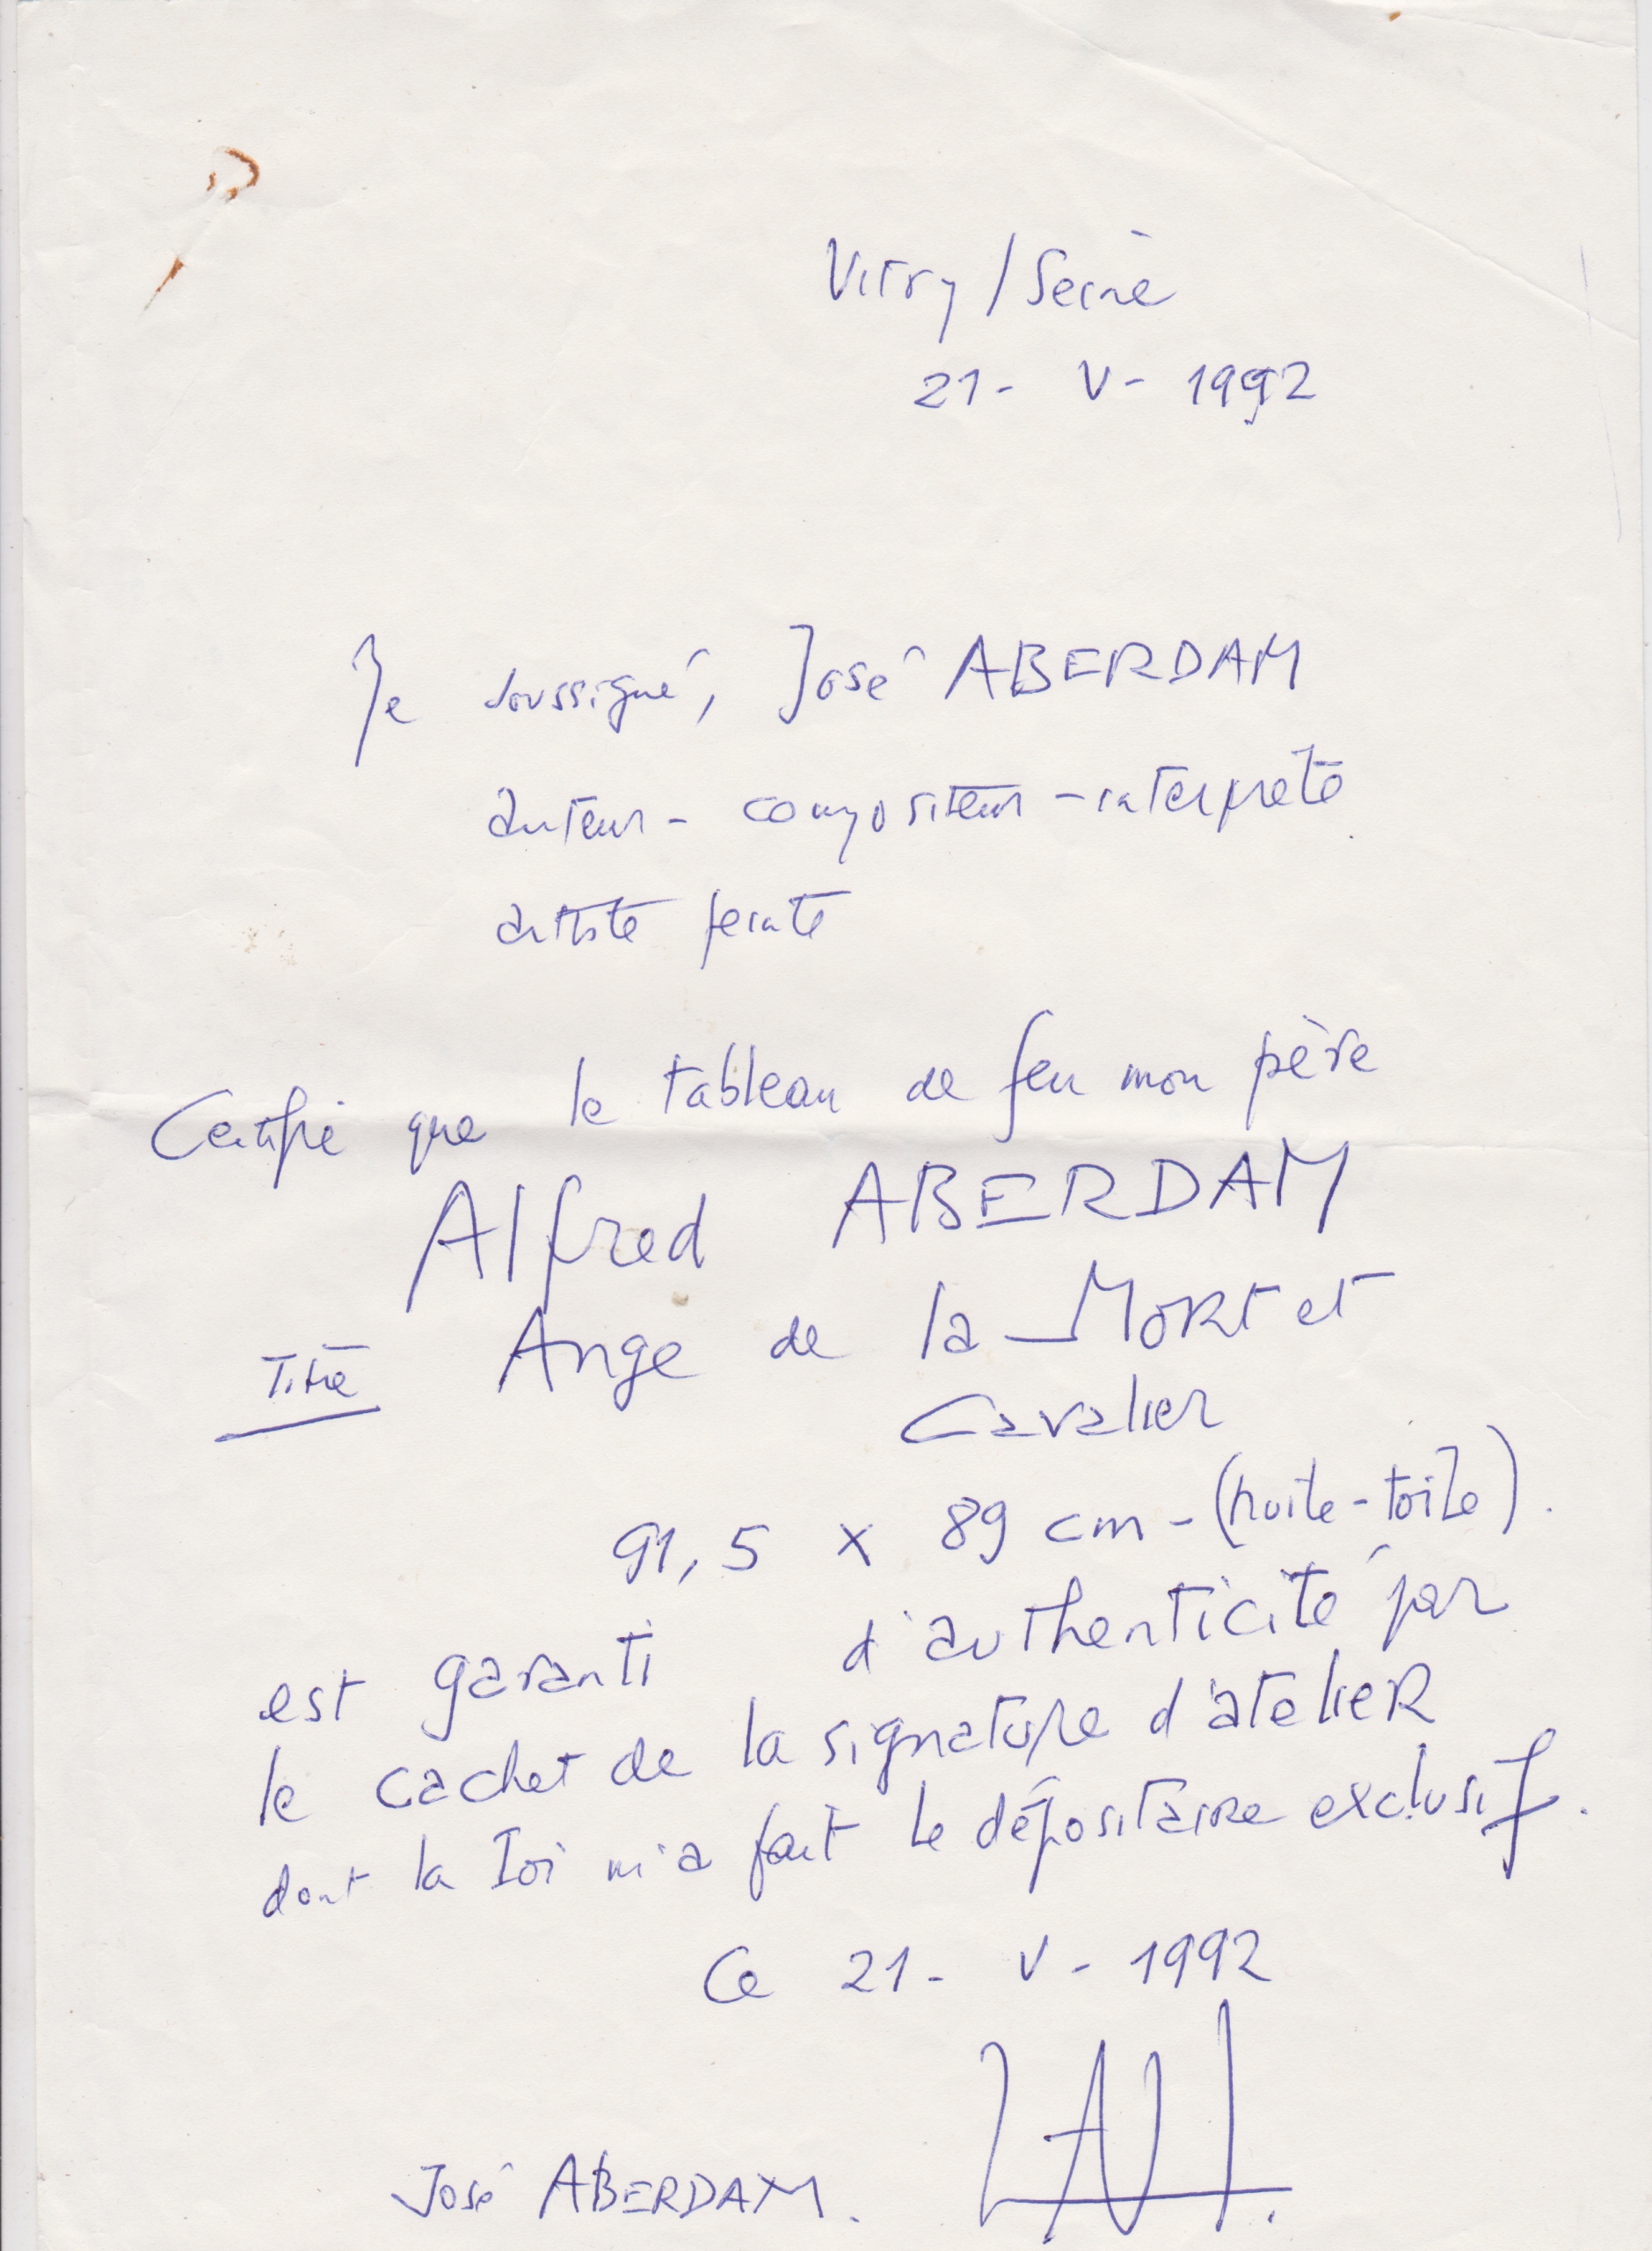 Vitry / Seine
21 - V - 1992
Je soussigné, José ABERDAM
auteur - compositeur - interprète
artiste peintre
Certifie que le tableau de feu mon père
Alfred ABERDAM
Titre Ange de la MORT et
Cavalier
91,5 x 89 cm - (huile - toile).
est garanti d'authenticité par
le cachet de la signature d'atelier
dont la loi m'a fait le dépositaire exclusif.
Ce 21 - V - 1992
José ABERDAM.